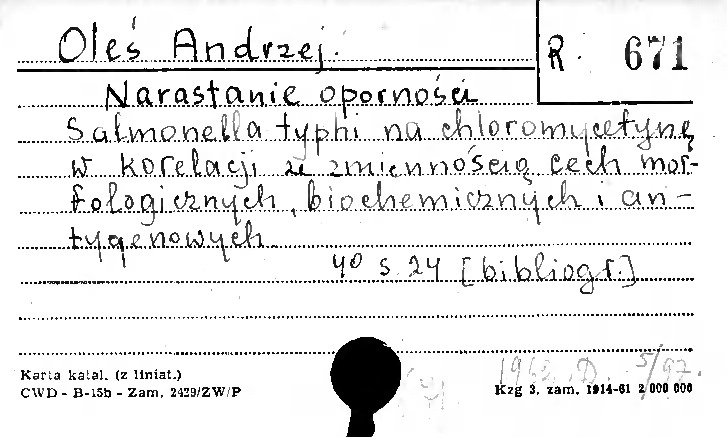 Oleś Andrzej.
R. 671
Narastanie oporności
Salmonella typhi na chloromycetynę
w korelacji ze zmiennością cech mor-
fologicznych, biochemicznych i an-
tygenowych.
4° s. 24 [bibliogr.]
1962 D. 5/97.
Karta katal. (z liniat.)
CWD - B-15b - Zam. 2429/ZW/P
Kzg 3, zam. 1914-61 2 000 000